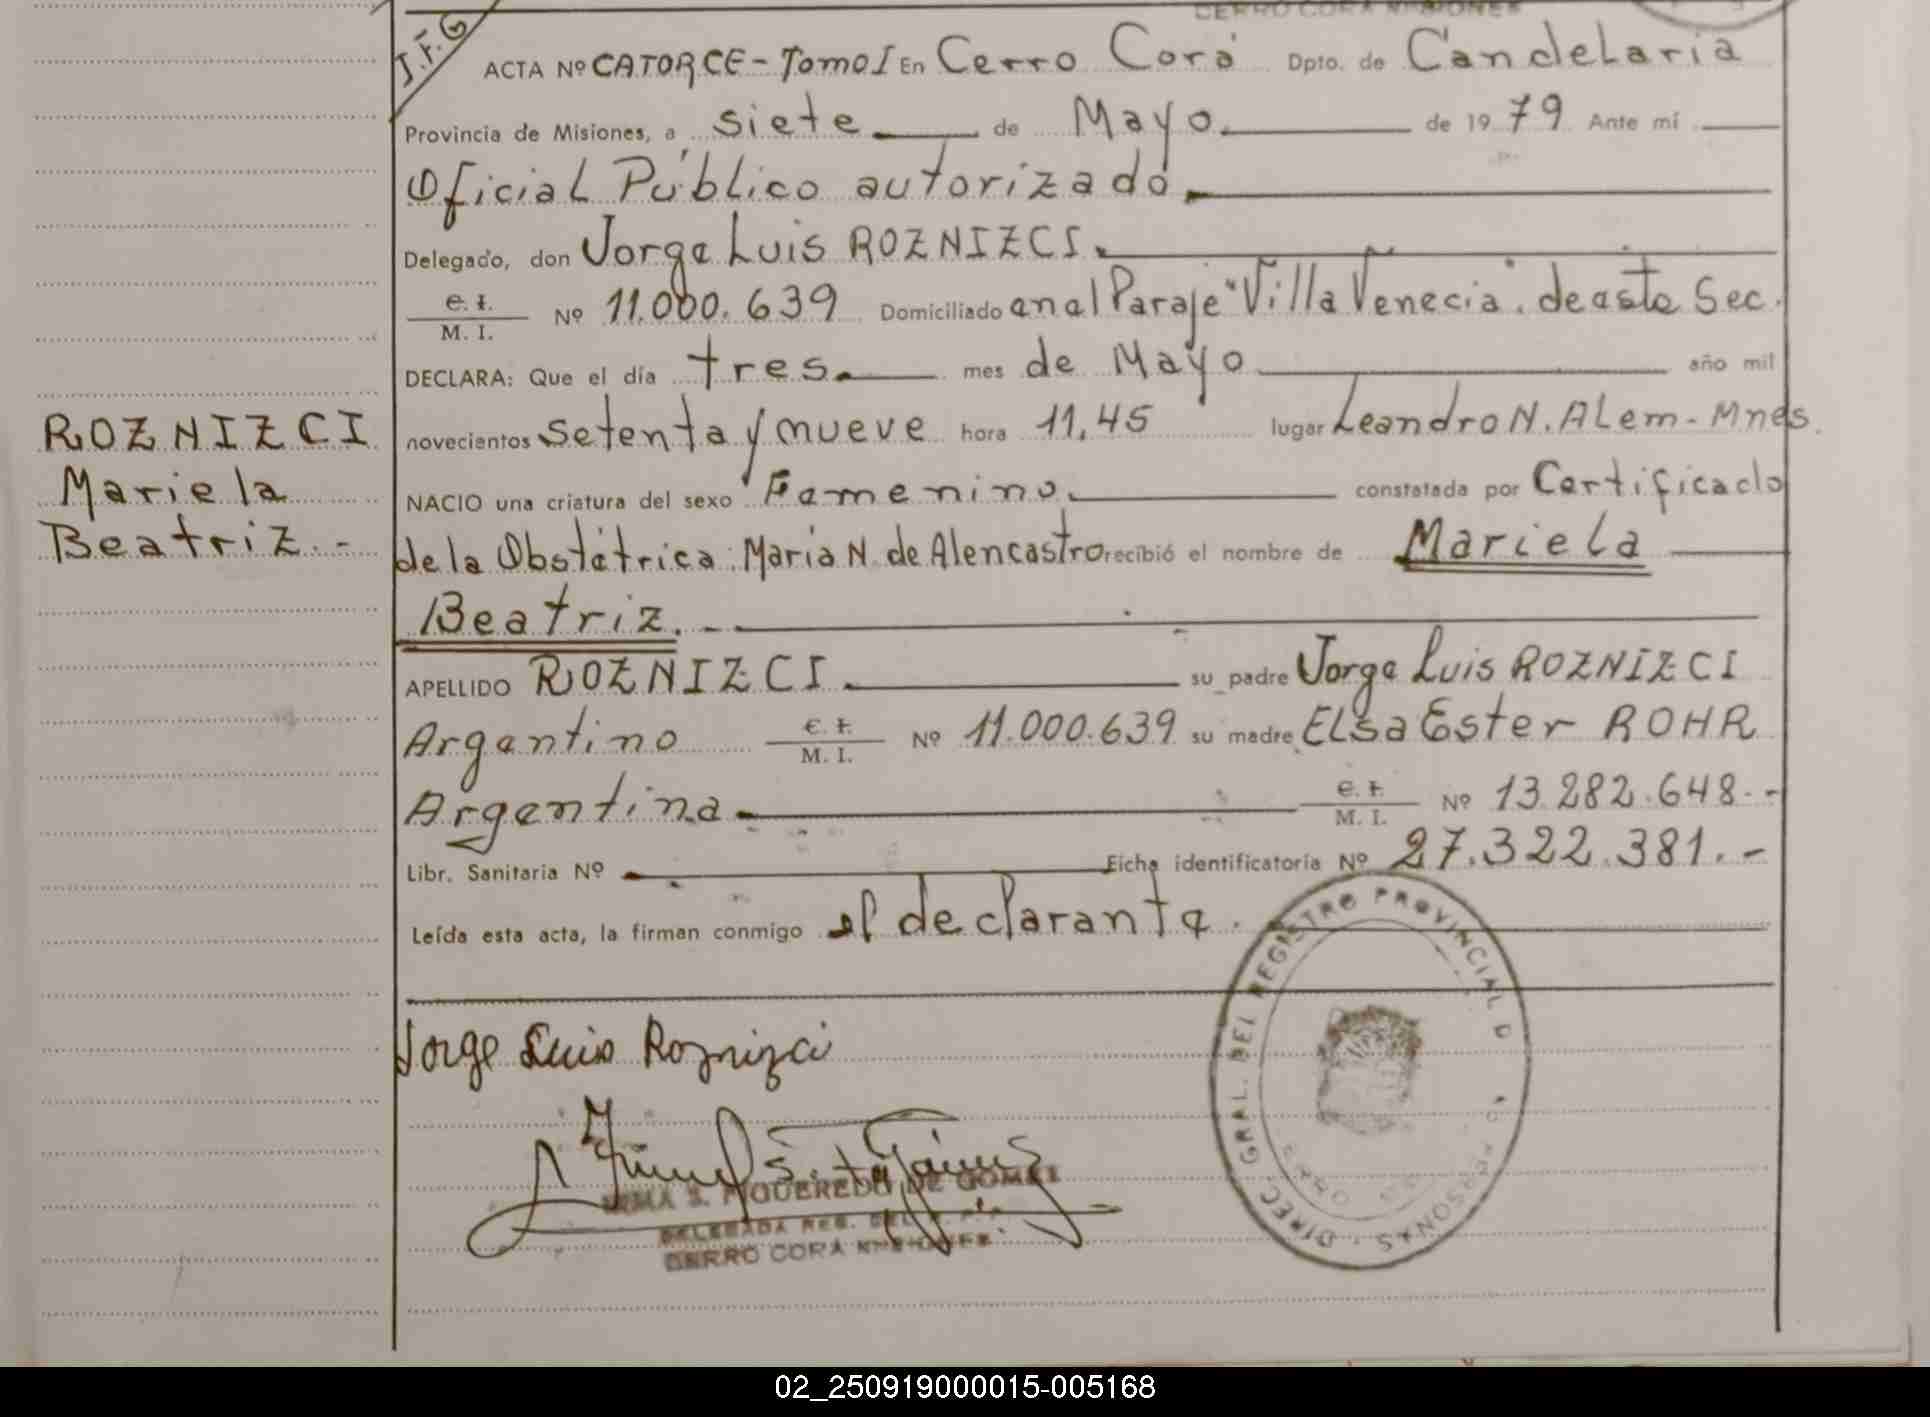 CERRO CORA MISIONES
J.F.G
ACTA Nº CATORCE - Tomo I En Cerro Corá Dpto. de Candelaria
Provincia de Misiones, a siete de Mayo. de 1979 Ante mí
Oficial Público autorizado
Delegado, don Jorge Luis ROZNIZCI.
C. I.
M. I. Nº 11.000.639 Domiciliado en el Paraje "Villa Venecia". de este Sec.
DECLARA: Que el día tres. mes de Mayo año mil
novecientos setenta y nueve hora 11,45 lugar Leandro N. ALem - Mnes.
NACIO una criatura del sexo Femenino. constatada por Certificado
de la Obstétrica: María N. de Alencastro recibió el nombre de Mariela
Beatriz. -
APELLIDO ROZNIZCI. su padre Jorge Luis ROZNIZCI
Argentino C. I. M. I. Nº 11.000.639 su madre ELsa Ester ROHR
Argentina C. I. M. I. Nº 13.282.648.-
Libr. Sanitaria Nº Ficha identificatoria Nº 27.322.381.-
Leída esta acta, la firman conmigo el declarante.
ROZNIZCI
Mariela
Beatriz. -
Jorge Luis Roznizci
IRMA S. FIGUEREDO DE GOMEZ
DELEGADA REG. DEL
CERRO CORA MISIONES
DIREC. GRAL. DEL REGISTRO PROVINCIAL D PERSONAS.
02_250919000015-005168